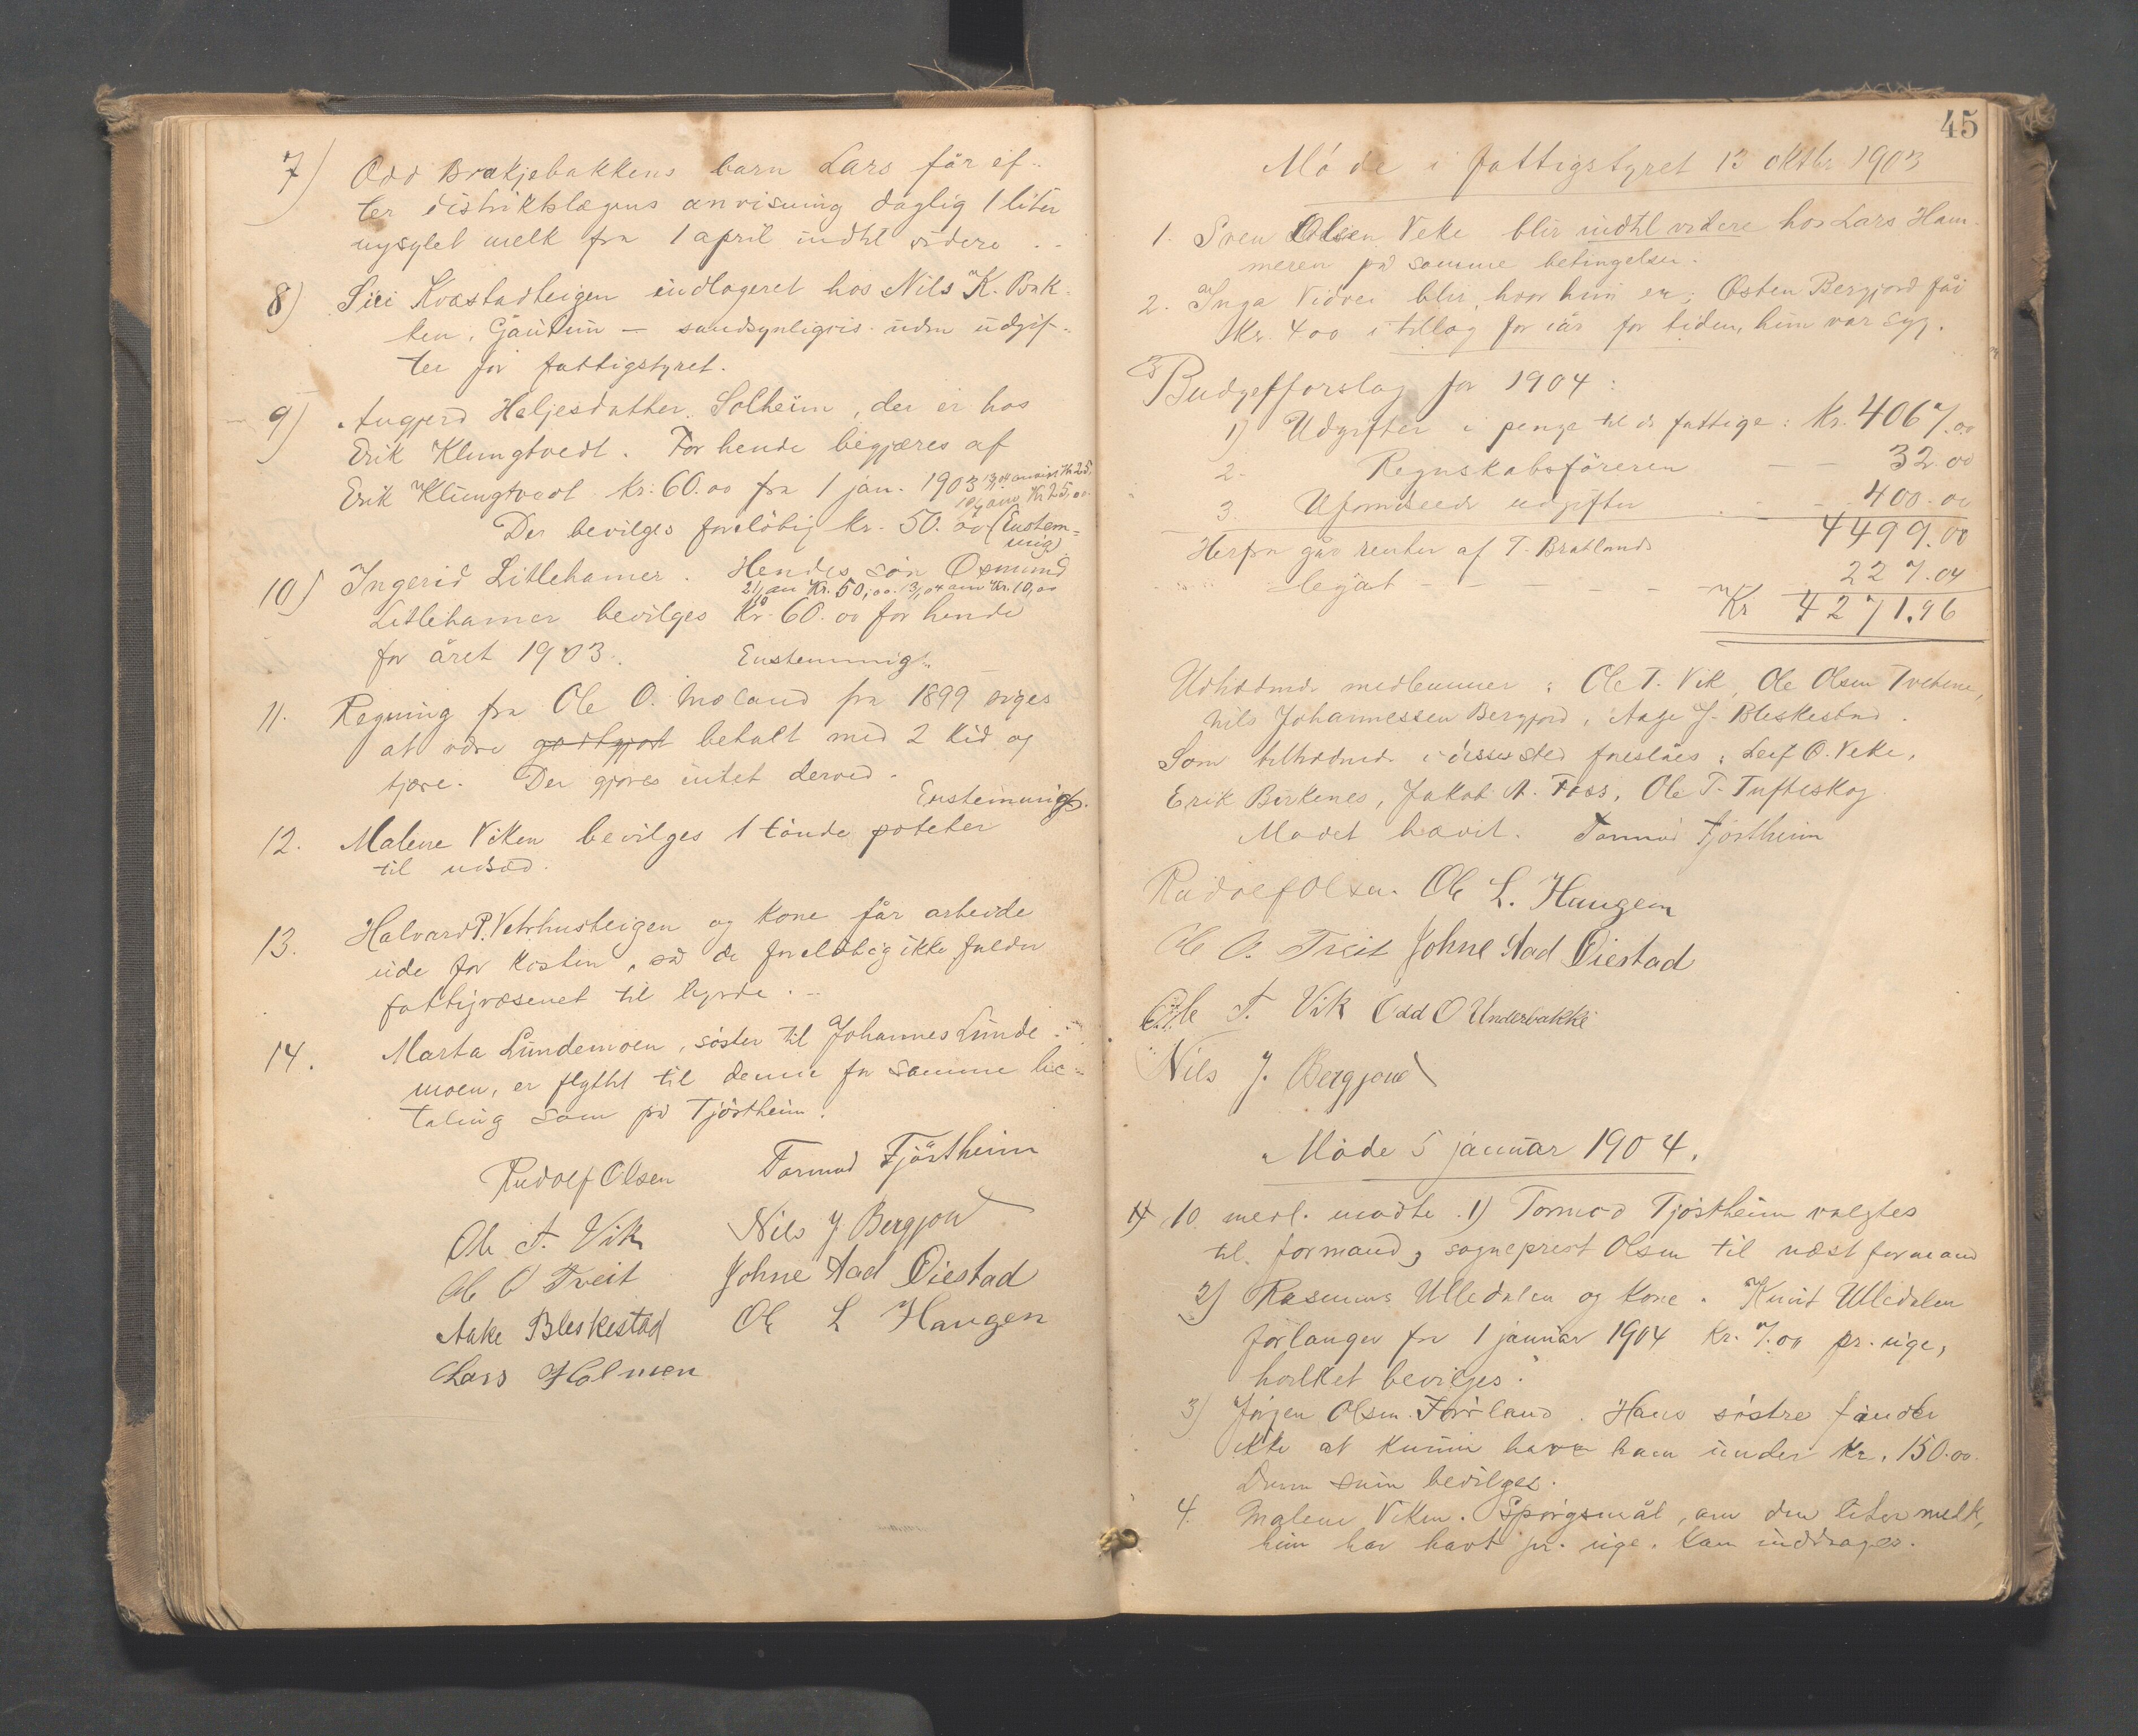 7) Odd Brækjebakkens barn Lars får ef-
ter distriktslægens anvisning daglig 1 liter
nysylet melk fra 1 april indtil videre . -
8) Siri Kvæstadteigen indlogeret hos Nils K. Bak-
ken, Gautun - sandsynligvis uden udgif-
ter for fattigstyret.
9) Angjerd Heljesdatter Solheim, der er hos
Erik Klungtvedt. For hende begjæres af
Erik Klungtvedt kr. 60.00 fra 1 jan. 1903
Der bevilges foreløbig kr. 50.00 (Enstem-
mig)
10) Ingerid Litlehamer. Hendes søn Osmund
Litlehamer bevilges Kr. 60.00 for hende
for året 1903. Enstemmigt.
11. Regning fra Ole O. Moland fra 1899 siges
at være godtgjort betalt med 2 kid og
tjære. Der gjøres intet derved.
Enstemmigt.
12. Malene Viken bevilges 1 tønde poteter
til udsæd.
13. Halvard P. Vetrhusteigen og kone får arbeide
ude for kosten, så de foreløbig ikke falder
fattigvæsenet til byrde. -
14. Marta Lundemoen, søster til Johannes Lunde-
moen, er flyttet til denne for samme be-
taling som på Tjøstheim.
Rudolf Olsen Tormod Tjøstheim
Ole T. Vik Nils J Bergjord
Ole O Tveit Johne Aad Øiestad
Aake Bleskestad Ole L Haugen
Lars Holmen
45
Møde i fattigstyret 13 oktbr 1903
1. Sven Olsen Veke blir indtil videre hos Lars Ham-
meren på samme betingelser.
2. Inga Vidvei blir, hvor hun er; Østen Bergjord får
Kr. 4 00 i tillæg for iår for tiden, hun var syg.
3 Budgetforslag for 1904:
1) Udgifter i penge til de fattige: Kr. 4067.00
2. Regnskabsføreren - 32.00
3. Uforudseede udgifter - 400.00
4499.00
Herfra går renter af T. Bratlands
legat - - - 227.04
Kr 4271.96
Udtrædende medlemmer: Ole T. Vik, Ole Olsen Tvetene,
Nils Johannessen Bergjord, Aage J. Bleskestad.
Som tiltrædende i disses sted foreslåes: Leif O. Veke,
Erik Birkenes, Jakob A. Foss, Ole T. Tufteskog.
Mødet hævet. Tormod Tjøstheim
Rudolf Olsen. Ole L. Haugen
Ole O. Tveit Johne Aad Øiestad
Ole T. Vik Odd O Underbakke
Nils J. Bergjord
Møde 5 januar 1904.
10 medl. mødte. 1) Tormod Tjøstheim valgtes
til formand, sogneprest Olsen til næstformand
2) Rasmus Ulledalen og kone. Knut Ulledalen
forlanger fra 1 januar 1904 Kr. 7.00 pr. uge,
hvilket bevilges.
3) Jørgen Olsen Førland. Hans søstre fander
ikke at kunne have ham under Kr. 150.00.
Denne sum bevilges.
4. Malene Viken. Spørgsmål, om den liter melk,
hun har havt pr. uge, kan inddrages.